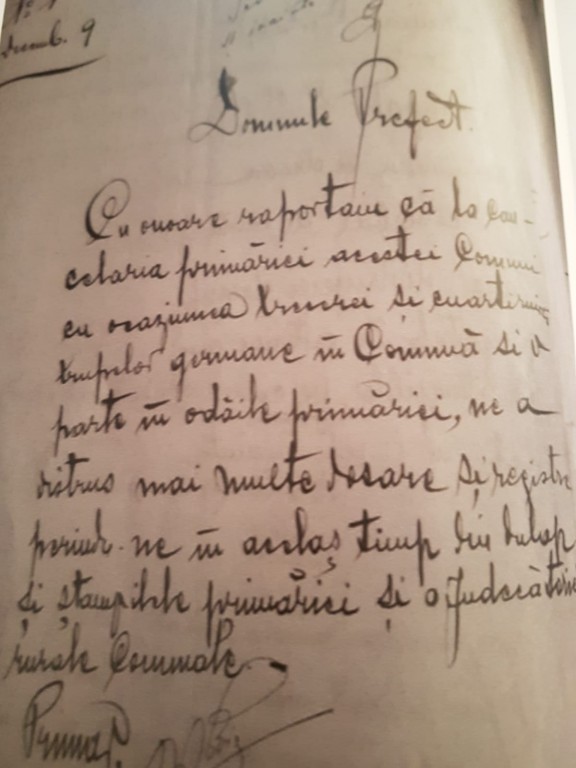 Decemb. 9
Domnule Prefect.
Cu onoare raportam că la can-
celaria primăriei acestei Comuni
cu ocaziunea trecerei și cuartiruirei
trupelor germane în Comună și o
parte în odăile primăriei, ne a
distrus mai multe dosare și registre
perind. ne în acelaș timp din dulap
și ștampilele primăriei și a Judecătoriei
rurale Comunale.
Primar,